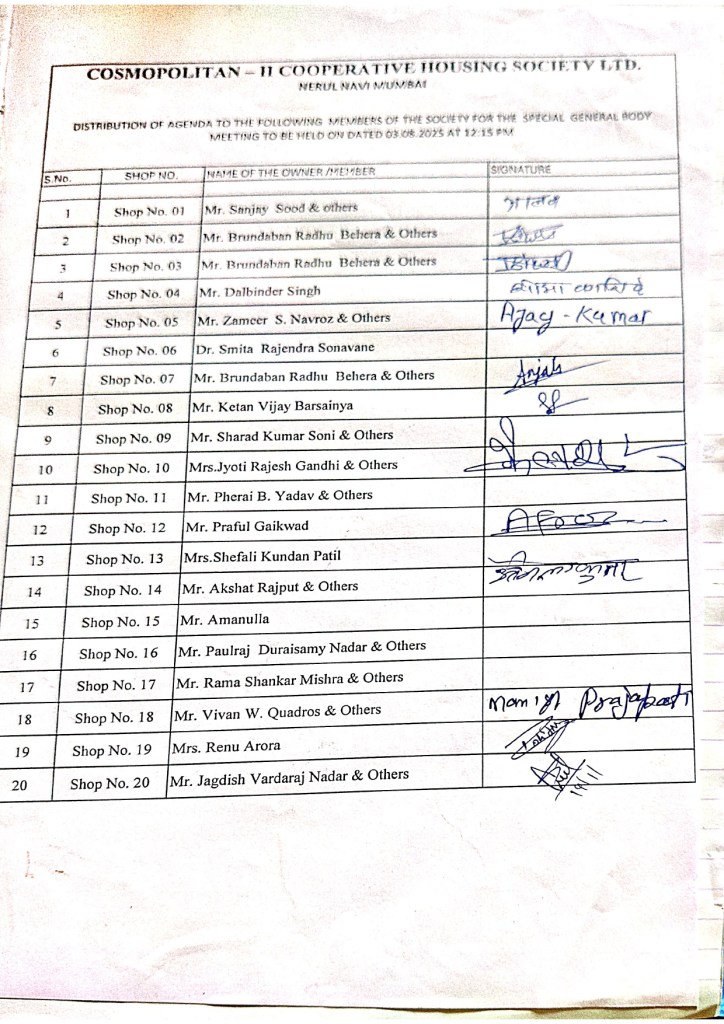 COSMOPOLITAN – II COOPERATIVE HOUSING SOCIETY LTD.
NERUL NAVI MUMBAI
DISTRIBUTION OF AGENDA TO THE FOLLOWING MEMBERS OF THE SOCIETY FOR THE SPECIAL GENERAL BODY
MEETING TO BE HELD ON DATED 03.08.2025 AT 12:15 PM
S.No. SHOP NO. NAME OF THE OWNER /MEMBER SIGNATURE
1 Shop No. 01 Mr. Sanjay Sood & others
2 Shop No. 02 Mr. Brundaban Radhu Behera & Others
3 Shop No. 03 Mr. Brundaban Radhu Behera & Others
4 Shop No. 04 Mr. Dalbinder Singh
5 Shop No. 05 Mr. Zameer S. Navroz & Others Ajay - Kumar
6 Shop No. 06 Dr. Smita Rajendra Sonavane
7 Shop No. 07 Mr. Brundaban Radhu Behera & Others Anjali
8 Shop No. 08 Mr. Ketan Vijay Barsainya
9 Shop No. 09 Mr. Sharad Kumar Soni & Others
10 Shop No. 10 Mrs.Jyoti Rajesh Gandhi & Others
11 Shop No. 11 Mr. Pherai B. Yadav & Others
12 Shop No. 12 Mr. Praful Gaikwad
13 Shop No. 13 Mrs.Shefali Kundan Patil
14 Shop No. 14 Mr. Akshat Rajput & Others
15 Shop No. 15 Mr. Amanulla
16 Shop No. 16 Mr. Paulraj Duraisamy Nadar & Others
17 Shop No. 17 Mr. Rama Shankar Mishra & Others
18 Shop No. 18 Mr. Vivan W. Quadros & Others Prajapati
19 Shop No. 19 Mrs. Renu Arora
20 Shop No. 20 Mr. Jagdish Vardaraj Nadar & Others